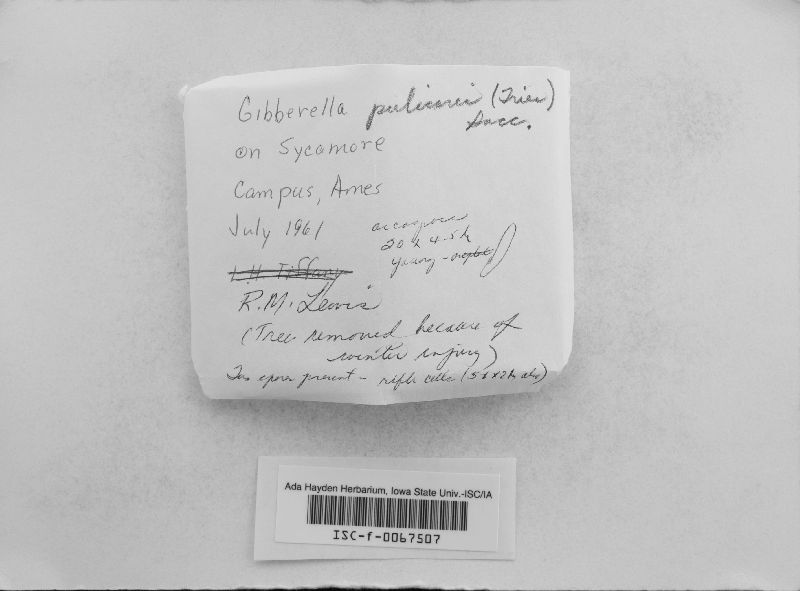 Gibberella pulicaris (Fries)
Sacc.
on Sycamore
Campus, Ames
July 1961
ascospores
20 x 4.5 µ
young -
L.H. Tiffany
R.M. Lewis
(Tree removed because of
winter injury)
spores present - cells (5
Ada Hayden Herbarium, Iowa State Univ.-ISC/IA
ISC-f-0067507